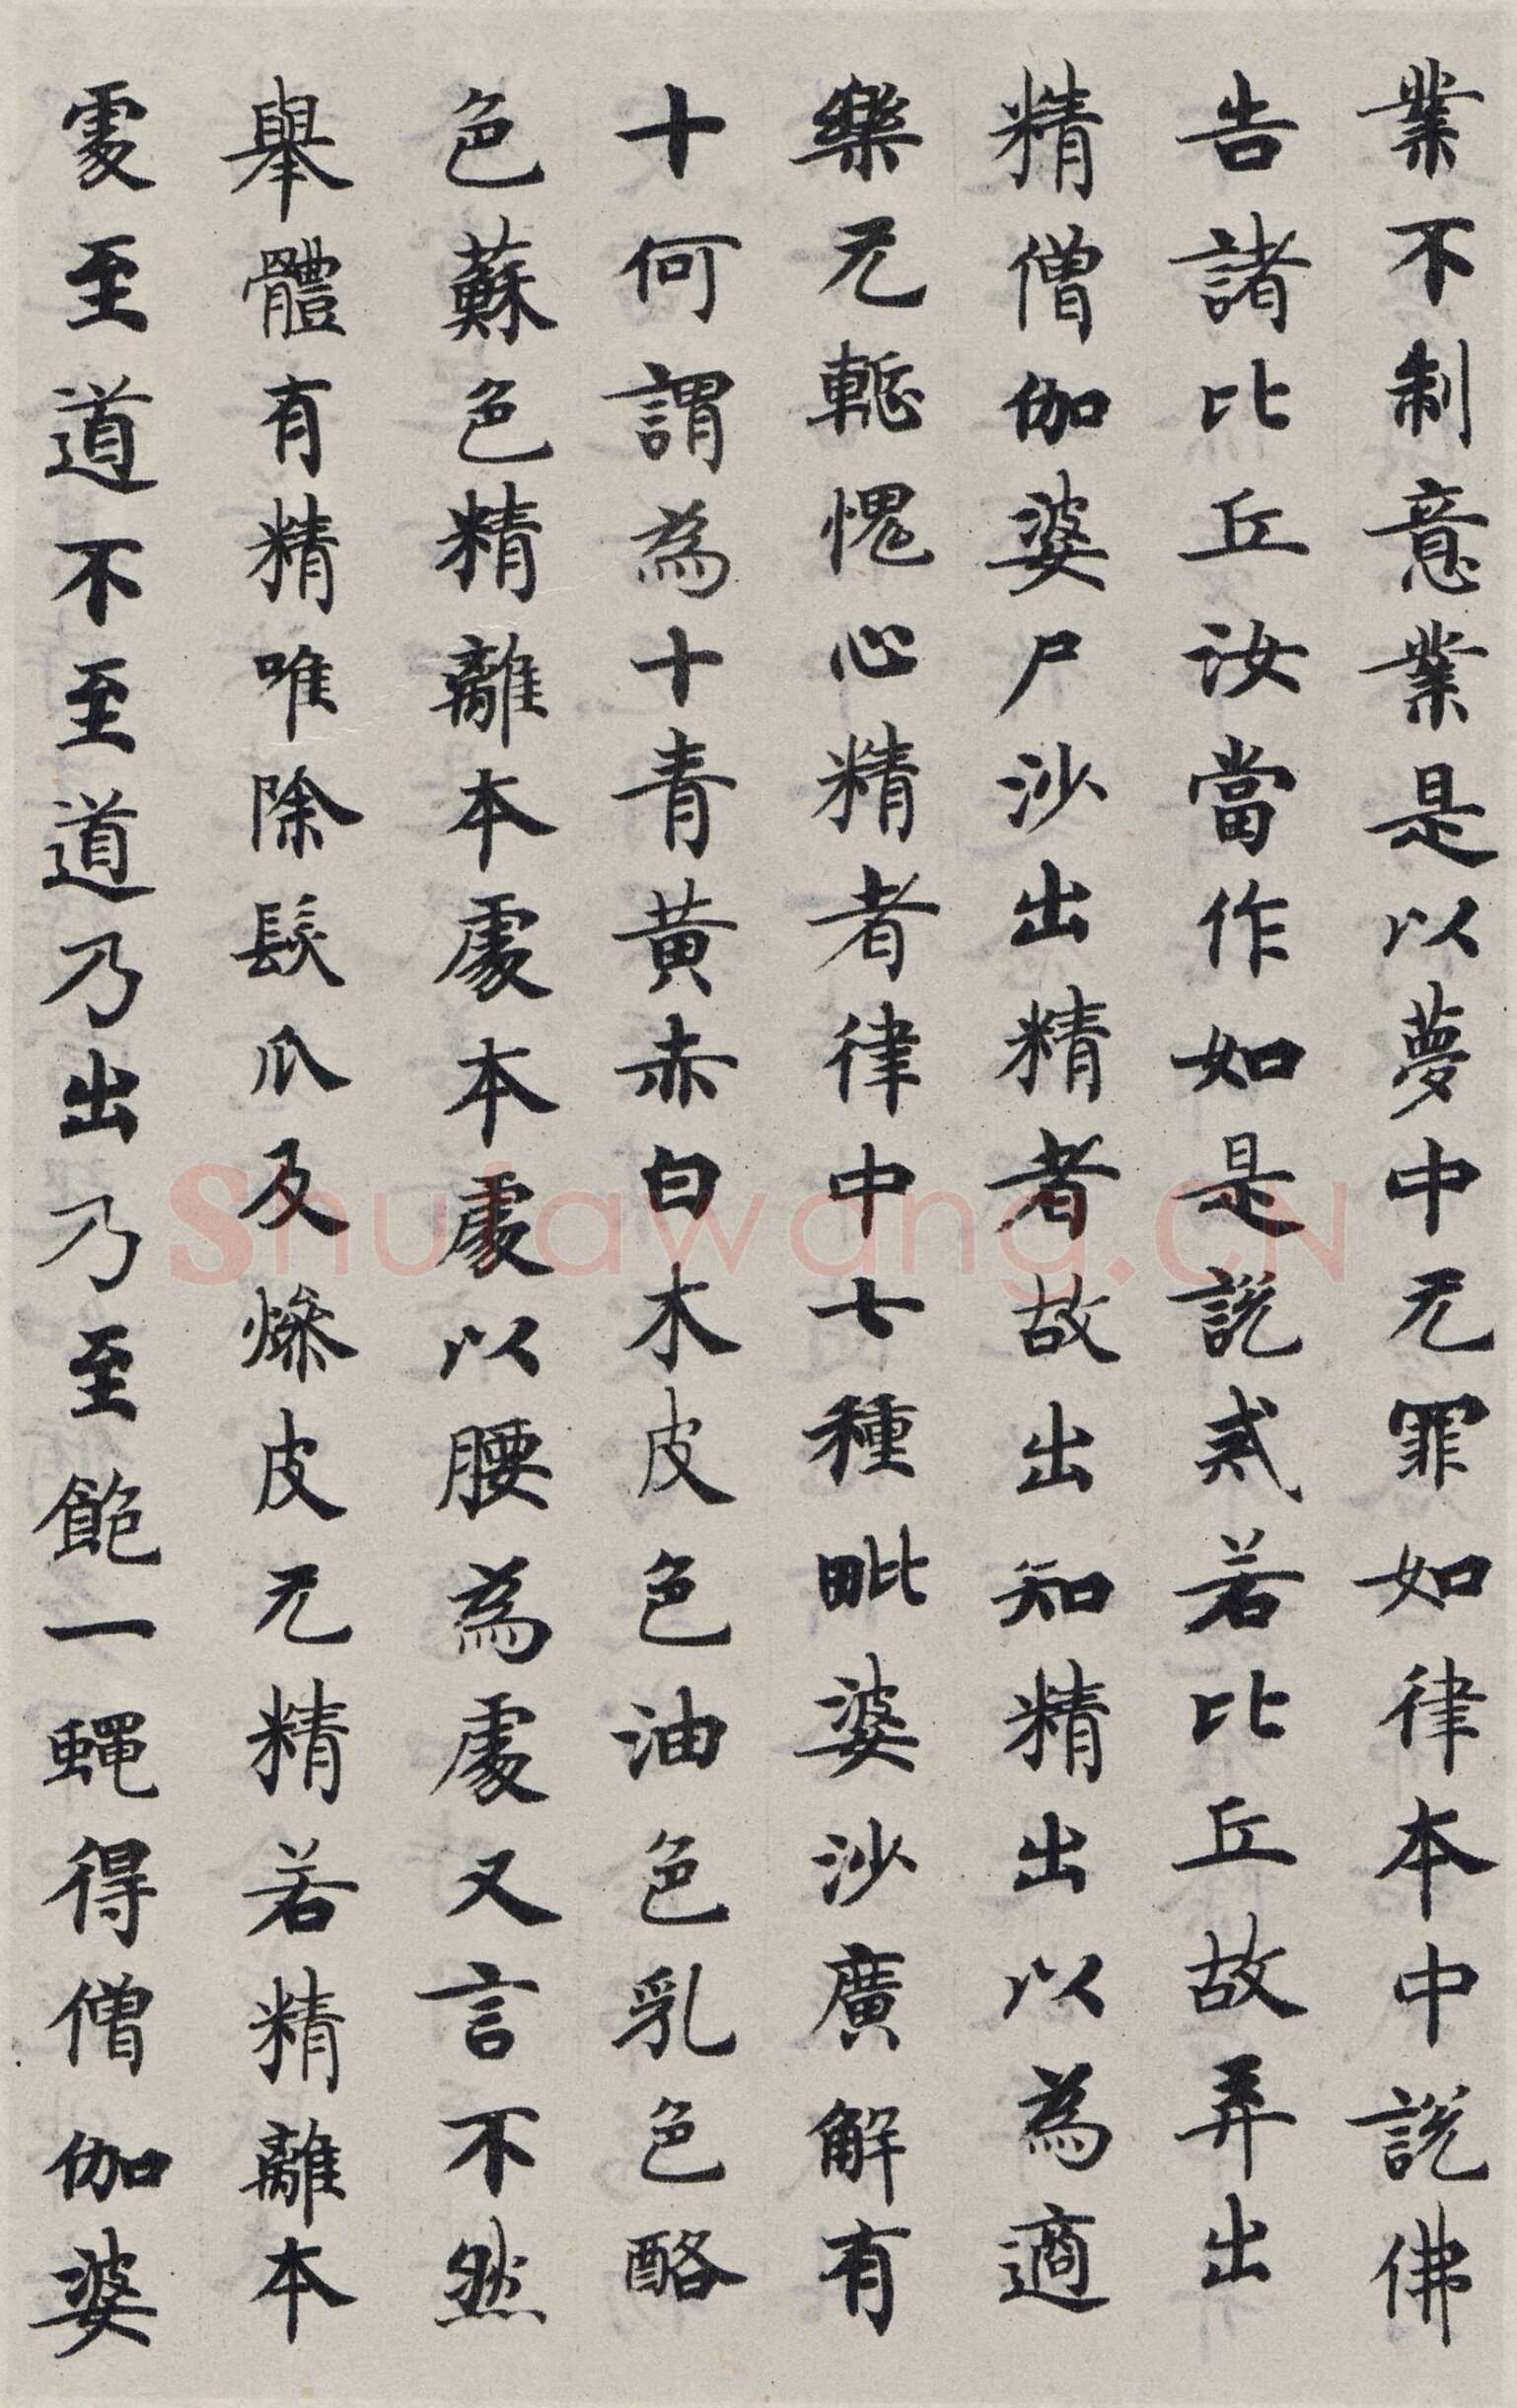 業不制意業是以夢中无罪如律本中說佛
告諸比丘汝當作如是說戒若比丘故弄出
精僧伽婆尸沙出精者故出知精出以為適
樂无慙愧心精者律中七種毗婆沙廣解有
十何謂為十青黃赤白木皮色油色乳色酪
色蘇色精離本處本處以腰為處又言不然
舉體有精唯除髮爪及燥皮无精若精離本
處至道不至道乃出乃至飽一蠅得僧伽婆
Shufawang.CN